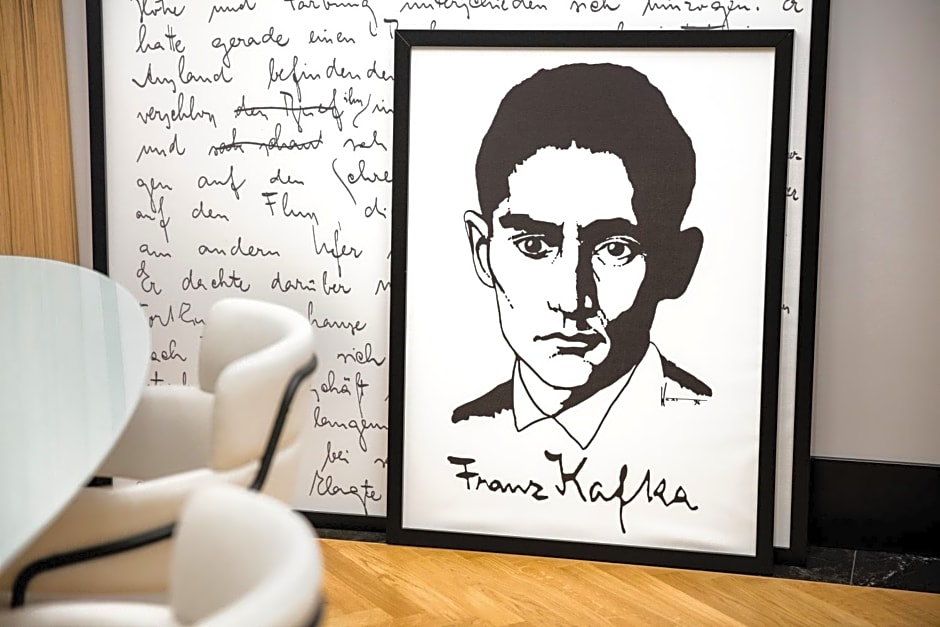 Höhe und Färbung unterschieden sich hinzogen. Er
hatte gerade einen
Ausland befindenden
verschloss den Brief ihn in
und sah
gen auf den Schre
auf den Fluss, di
am andern Ufer
Er dachte darüber n
sich
schäft
langem
bei
klagte
Franz Kafka